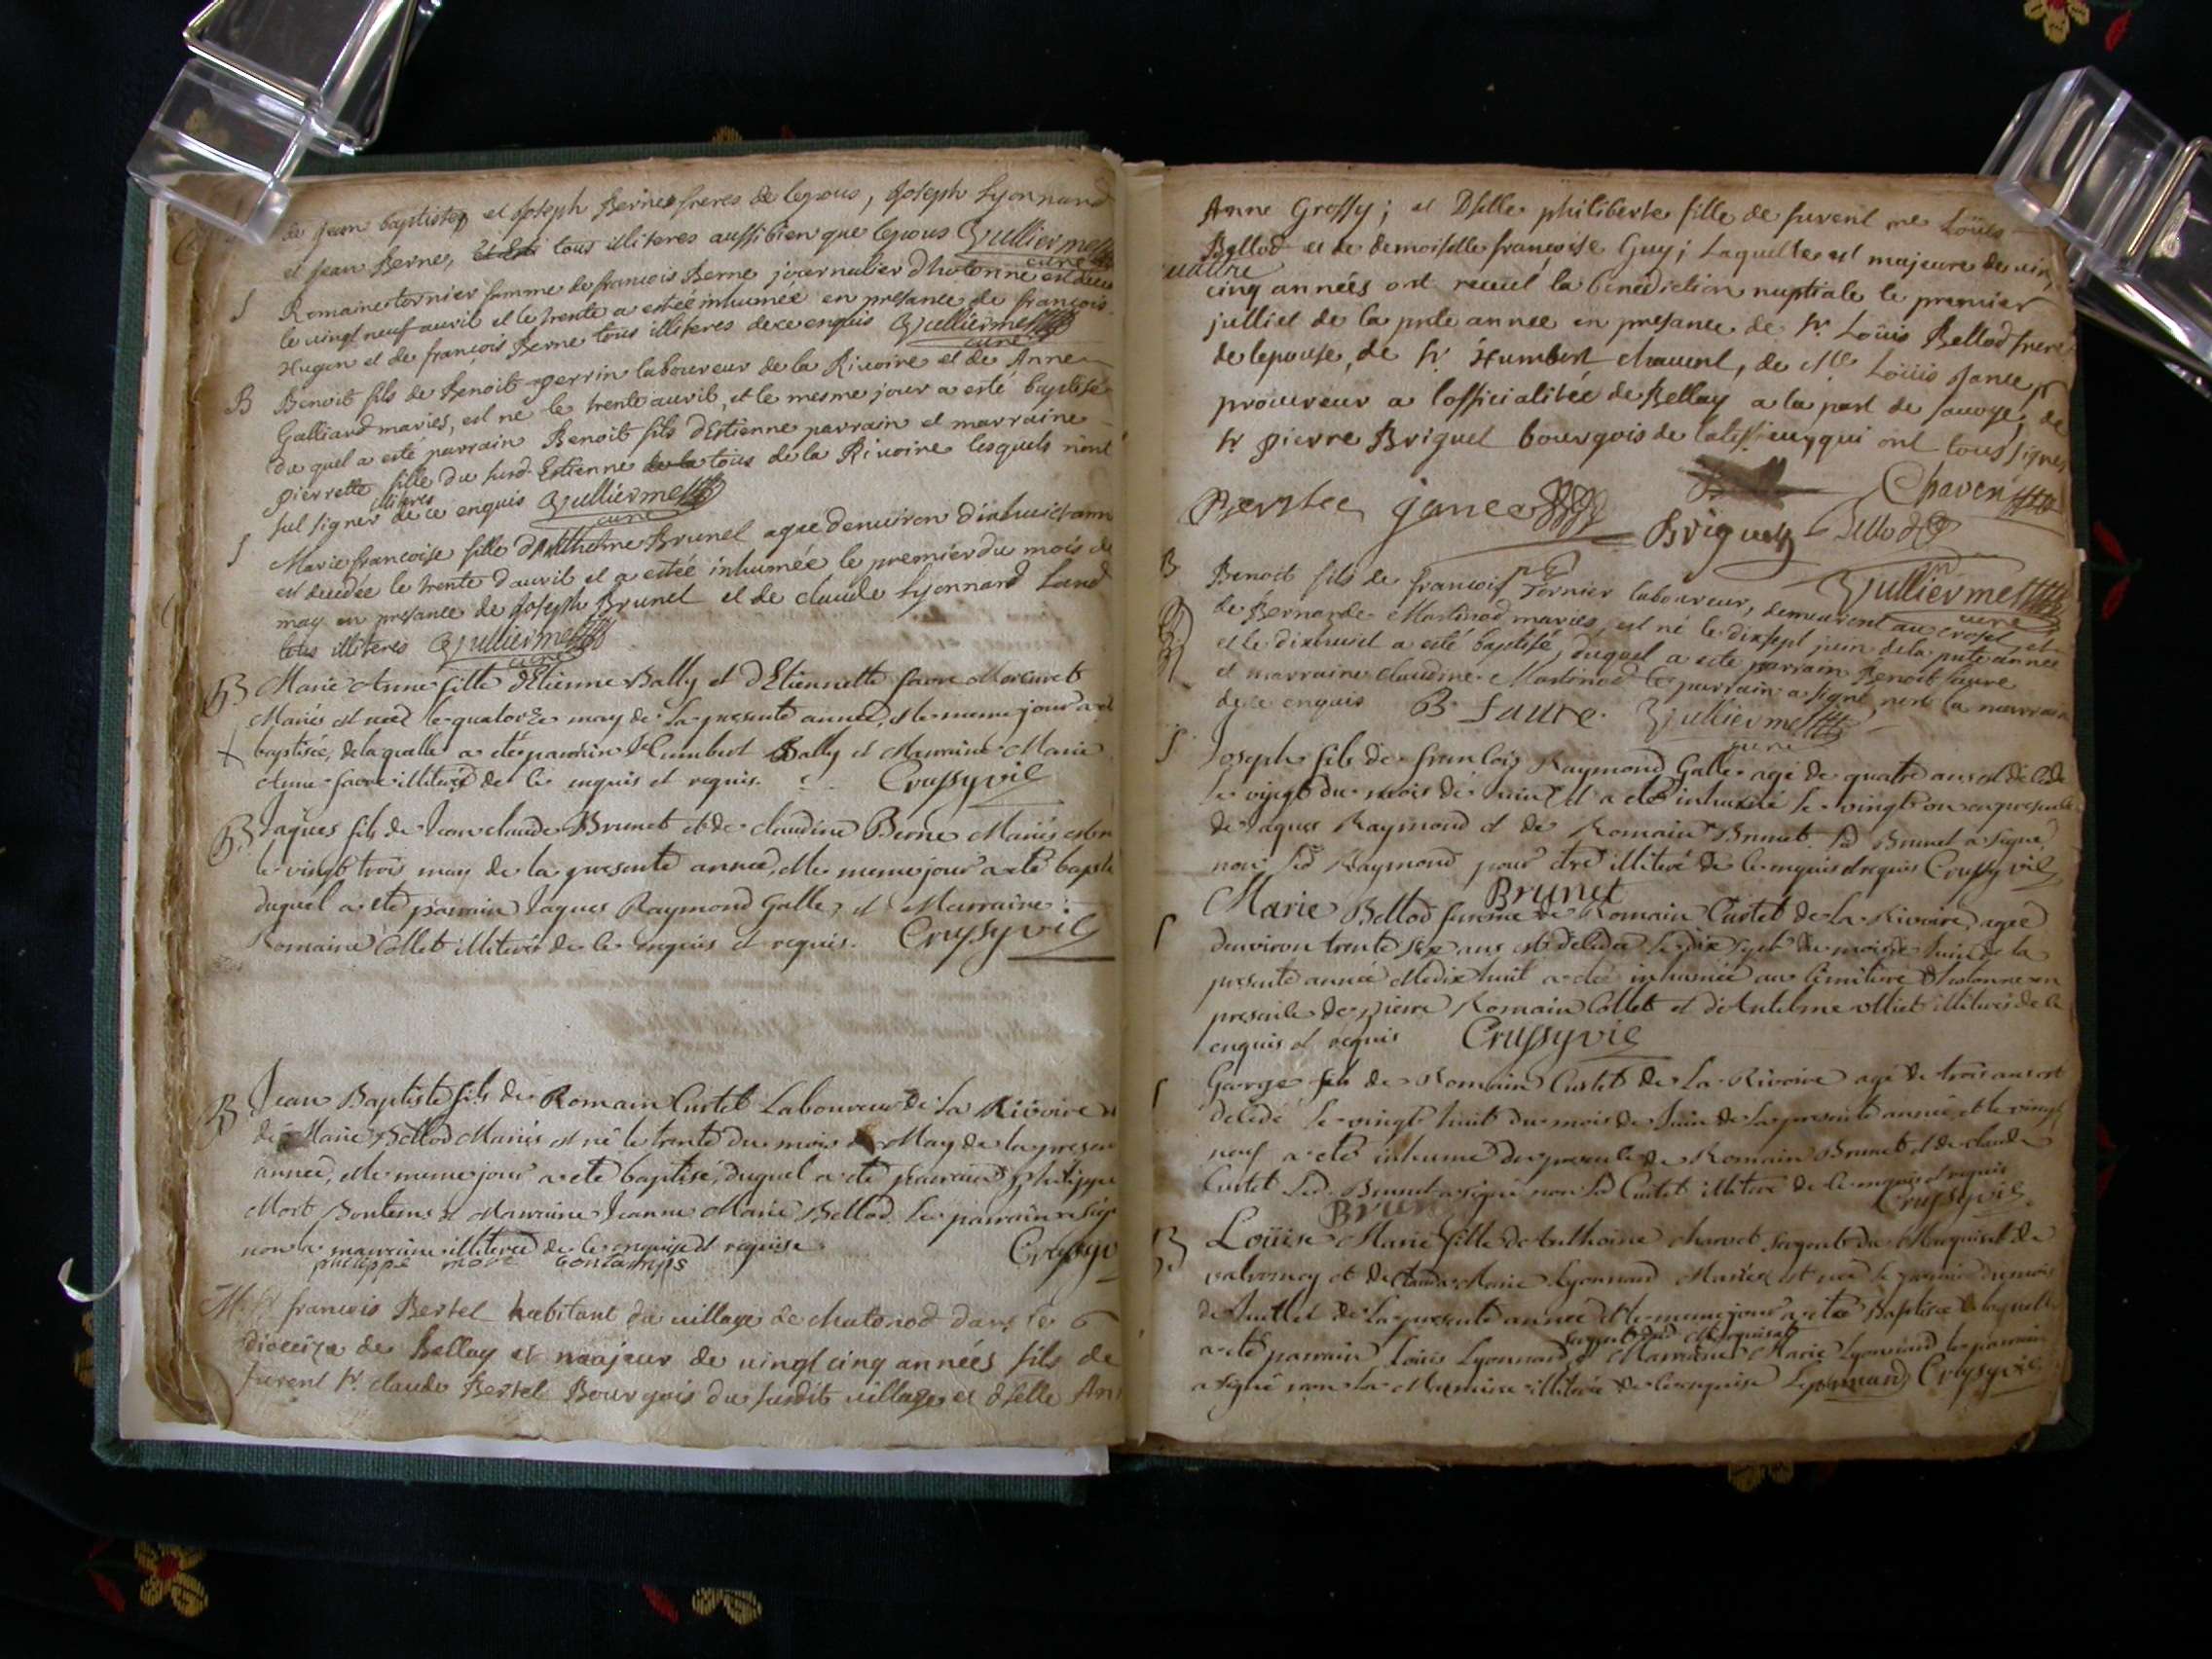 de jean baptiste et Joseph Berne freres de lepous, Joseph Lyonnard
et jean Berne, tous illiteres aussi bien que lepous Jullierme
curé
S Romaine tornier famme de francois Berne journalier dhotonne est
le vingt neuf auril et le trente a estéé inhumée en presance de francois
Hugon et de françois Berne tous illiteres dece enquis Jullierme
curé
B Benoit fils de Benoit perrin laboureur de la Riuoire et de Anne
Galliard mariés, est né le trente auril, et le mesme jour a esté baptisé
du quel a esté parrain Benoit fils d'Estienne perrain et marraine
pierrette fille du susd. Estienne de la tous de la Riuoire lesquels nont
illiteres
sul signer de ce enquis Jullierme
curé
S Marie francoise fille d'Anthelme Brunel agee denuiron dixhuict ans
est decedée le trente d'auril et a estéé inhumée le premier du mois de
may en presance de Joseph Brunel et de claude Lyonnard
tous illiteres Jullierme
curé
B Marie Anne fille d'Etienne Bally et d'Etiennette favre
Mariés est née le quatorze may de la presente année, et le meme jour a eté
baptisée, de laquelle a eté parrain Humbert Bally et Marraine Marie
Anne favre illiteres de ce enquis et requis. Crussyvil
B Jaques fils de Jean claude Brunet et de claudine Berne Mariés est né
le vingt trois may de la presente année, et le meme jour a eté
duquel a eté parrain Jaques Raymond Galle, et Marraine
Romaine Collet illiteres de ce enquis et requis. Crussyvil
B Jean Baptiste fils de Romain Curtet Laboureur de la Rivoire
de Marie Bellod Mariés est né le trente du mois de May de la
année, et le meme jour a eté baptisé, duquel a eté parrain philippe
Mort Bontems et Marraine Jeanne Marie Bellod le parrain a
non la marraine illiterée de ce enquise et requise
philippe
M francois Bertel habitant du uillage de chatonod dans le
dioceize de Bellay et maajeur de uingt cinq années fils de
furent sr. claude Bertel Bourgois du susdit uillage et dselle
Anne Grossy; et Dselle philiberte fille de furent me Loüis
Bellod et de demoiselle françoise Guy; Laquelle est majeure de
cinq années ont receut la benediction nuptiale le premier
julliet de la pnte année en presance de sr. Loüis Bellod frere
de lepouse, de sr. Humbert chauent, de Loüis Jance
procureur a lofficialitée de Bellay a la part de sauoye, de
sr pierre Briguel bourgois de qui ont tous signes
janca
Chaven
Briguel
Bellod
Jullierme
curé
B Benoit fils de francois Tornier laboureur, demeurent au crosel et
de Bernarde Martinod mariés, est né le dixsept juin de la pnte année
et le dixhuict a esté baptisé, duquel a esté parrain Benoit faure
et marraine claudine Martinod le parrain a signé non la marraine
de ce enquis B. faure Jullierme
curé
S Joseph fils de francois Raymond Galle agé de quatre ans est decedé
le vingt du mois de Juin et a eté inhumé le vingt un en presence
de Jaques Raymond et de Romain Brunet. led Brunet a signé
non led Raymond pour etre illiteré de ce enquis et requis Crussyvil
Brunet
S Marie Bellod femme de Romain Curtet de la Rivoire, agée
denviron trente six ans est decedée le dix sept du mois de Juin de la
presente année et le dix huit a eté inhumée au cimitiere d'hotonne en
presence de pierre Romain Collet et d'Antelme illiteres de ce
enquis et requis Crussyvil
S George fils de Romain Curtet de la Rivoire agé de trois ans est
decedé le vingt huit du mois de Juin de la presente année, et le vingt
neuf a eté inhumé en presence de Romain Brunet et de claude
Curtet led. Brunet a signé non led Curtet illiteré de ce enquis et requis
Brun Crussyvil
B Loüise Marie fille de Anthoine charvet sergent du Marquisat de
valromey et de claude Marie Lyonnard Mariés est née le premier du mois
de Juillet de la presente année et le meme jour a eté Baptisée de laquelle
sergent dud Marquisat
a eté parrain Loüis Lyonnard et Marraine Marie Lyonnard le parrain
a signé non la Marraine illiterée de ce enquise Lyonnard Crussyvil